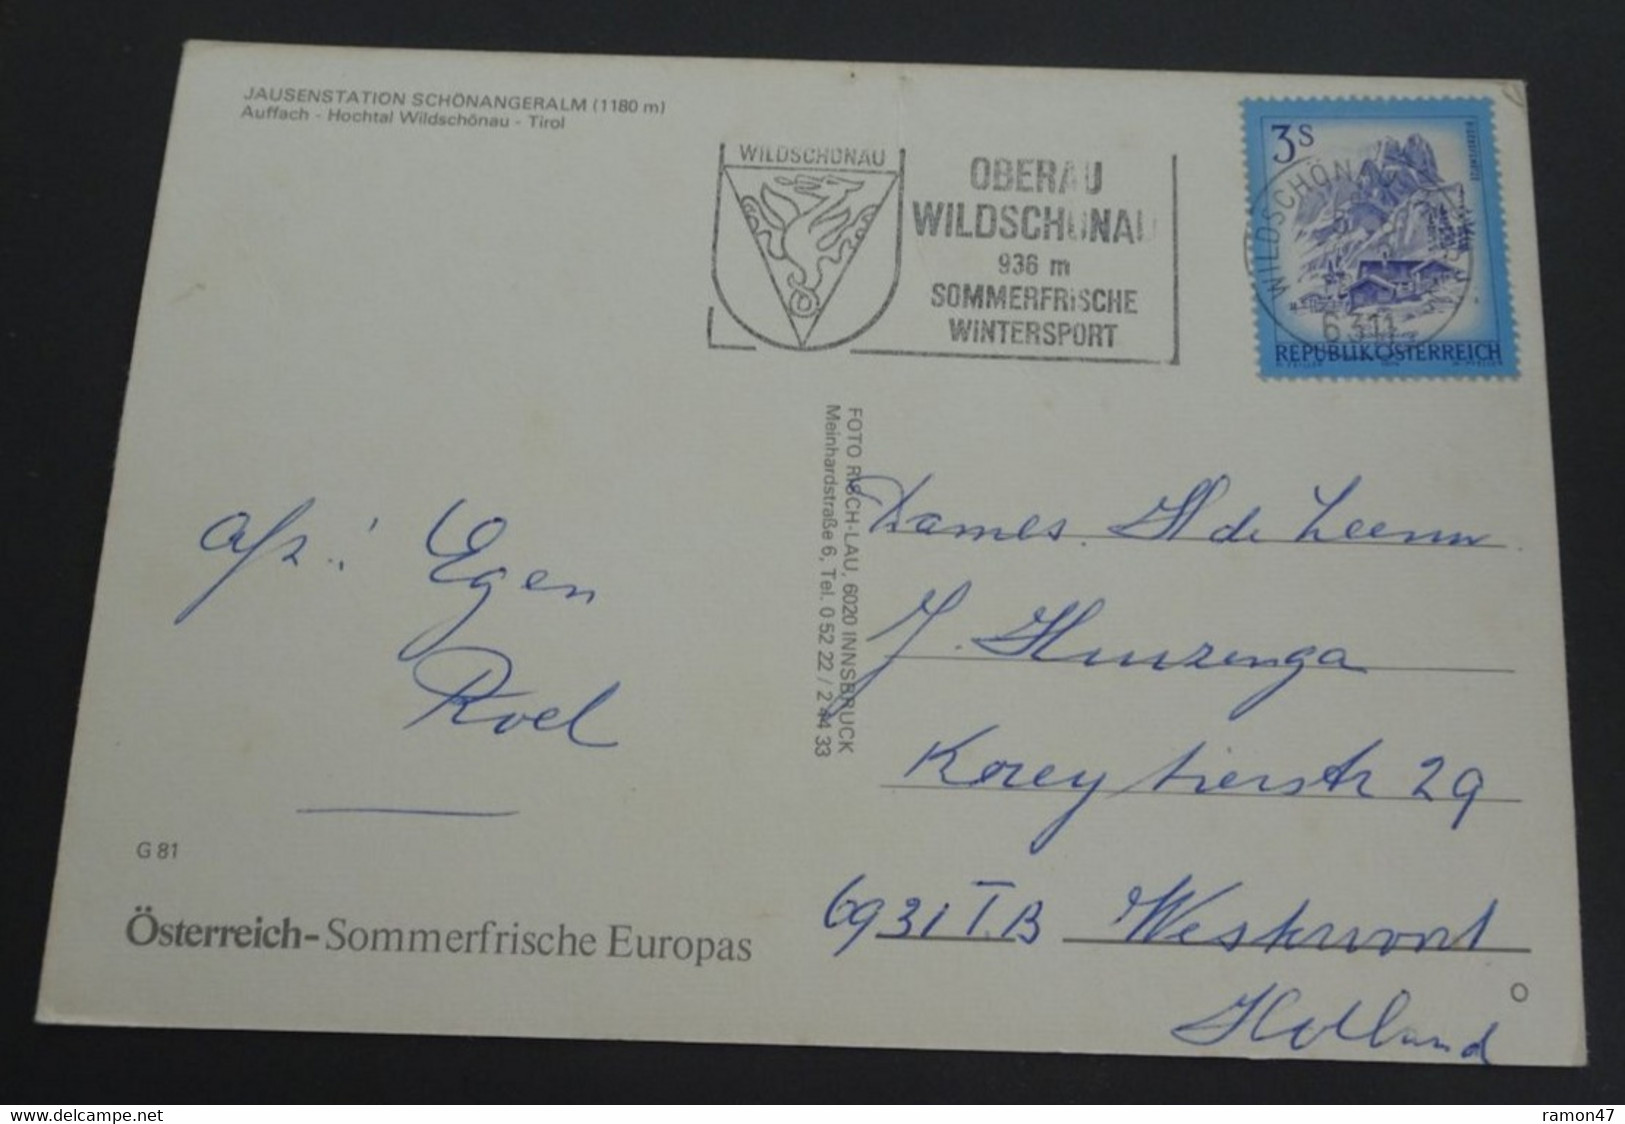 JAUSENSTATION SCHÖNANGERALM (1180 m)
Auffach - Hochtal Wildschönau - Tirol
WILDSCHÖNAU
OBERAU
WILDSCHÖNAU
936 m
SOMMERFRISCHE
WINTERSPORT
3S
WILDSCHÖNAU
6311
REPUBLIK ÖSTERREICH
FOTO RISCH-LAU, 6020 INNSBRUCK
Meinhardstraße 6, Tel. 0 52 22 / 2 44 33
afz.: Egen
Roel
Dames. H de Leeuw
J. Huizenga
29
6931 T.B Westervoort
Holland
G 81
Österreich-Sommerfrische Europas
delcampe.net
ramon47